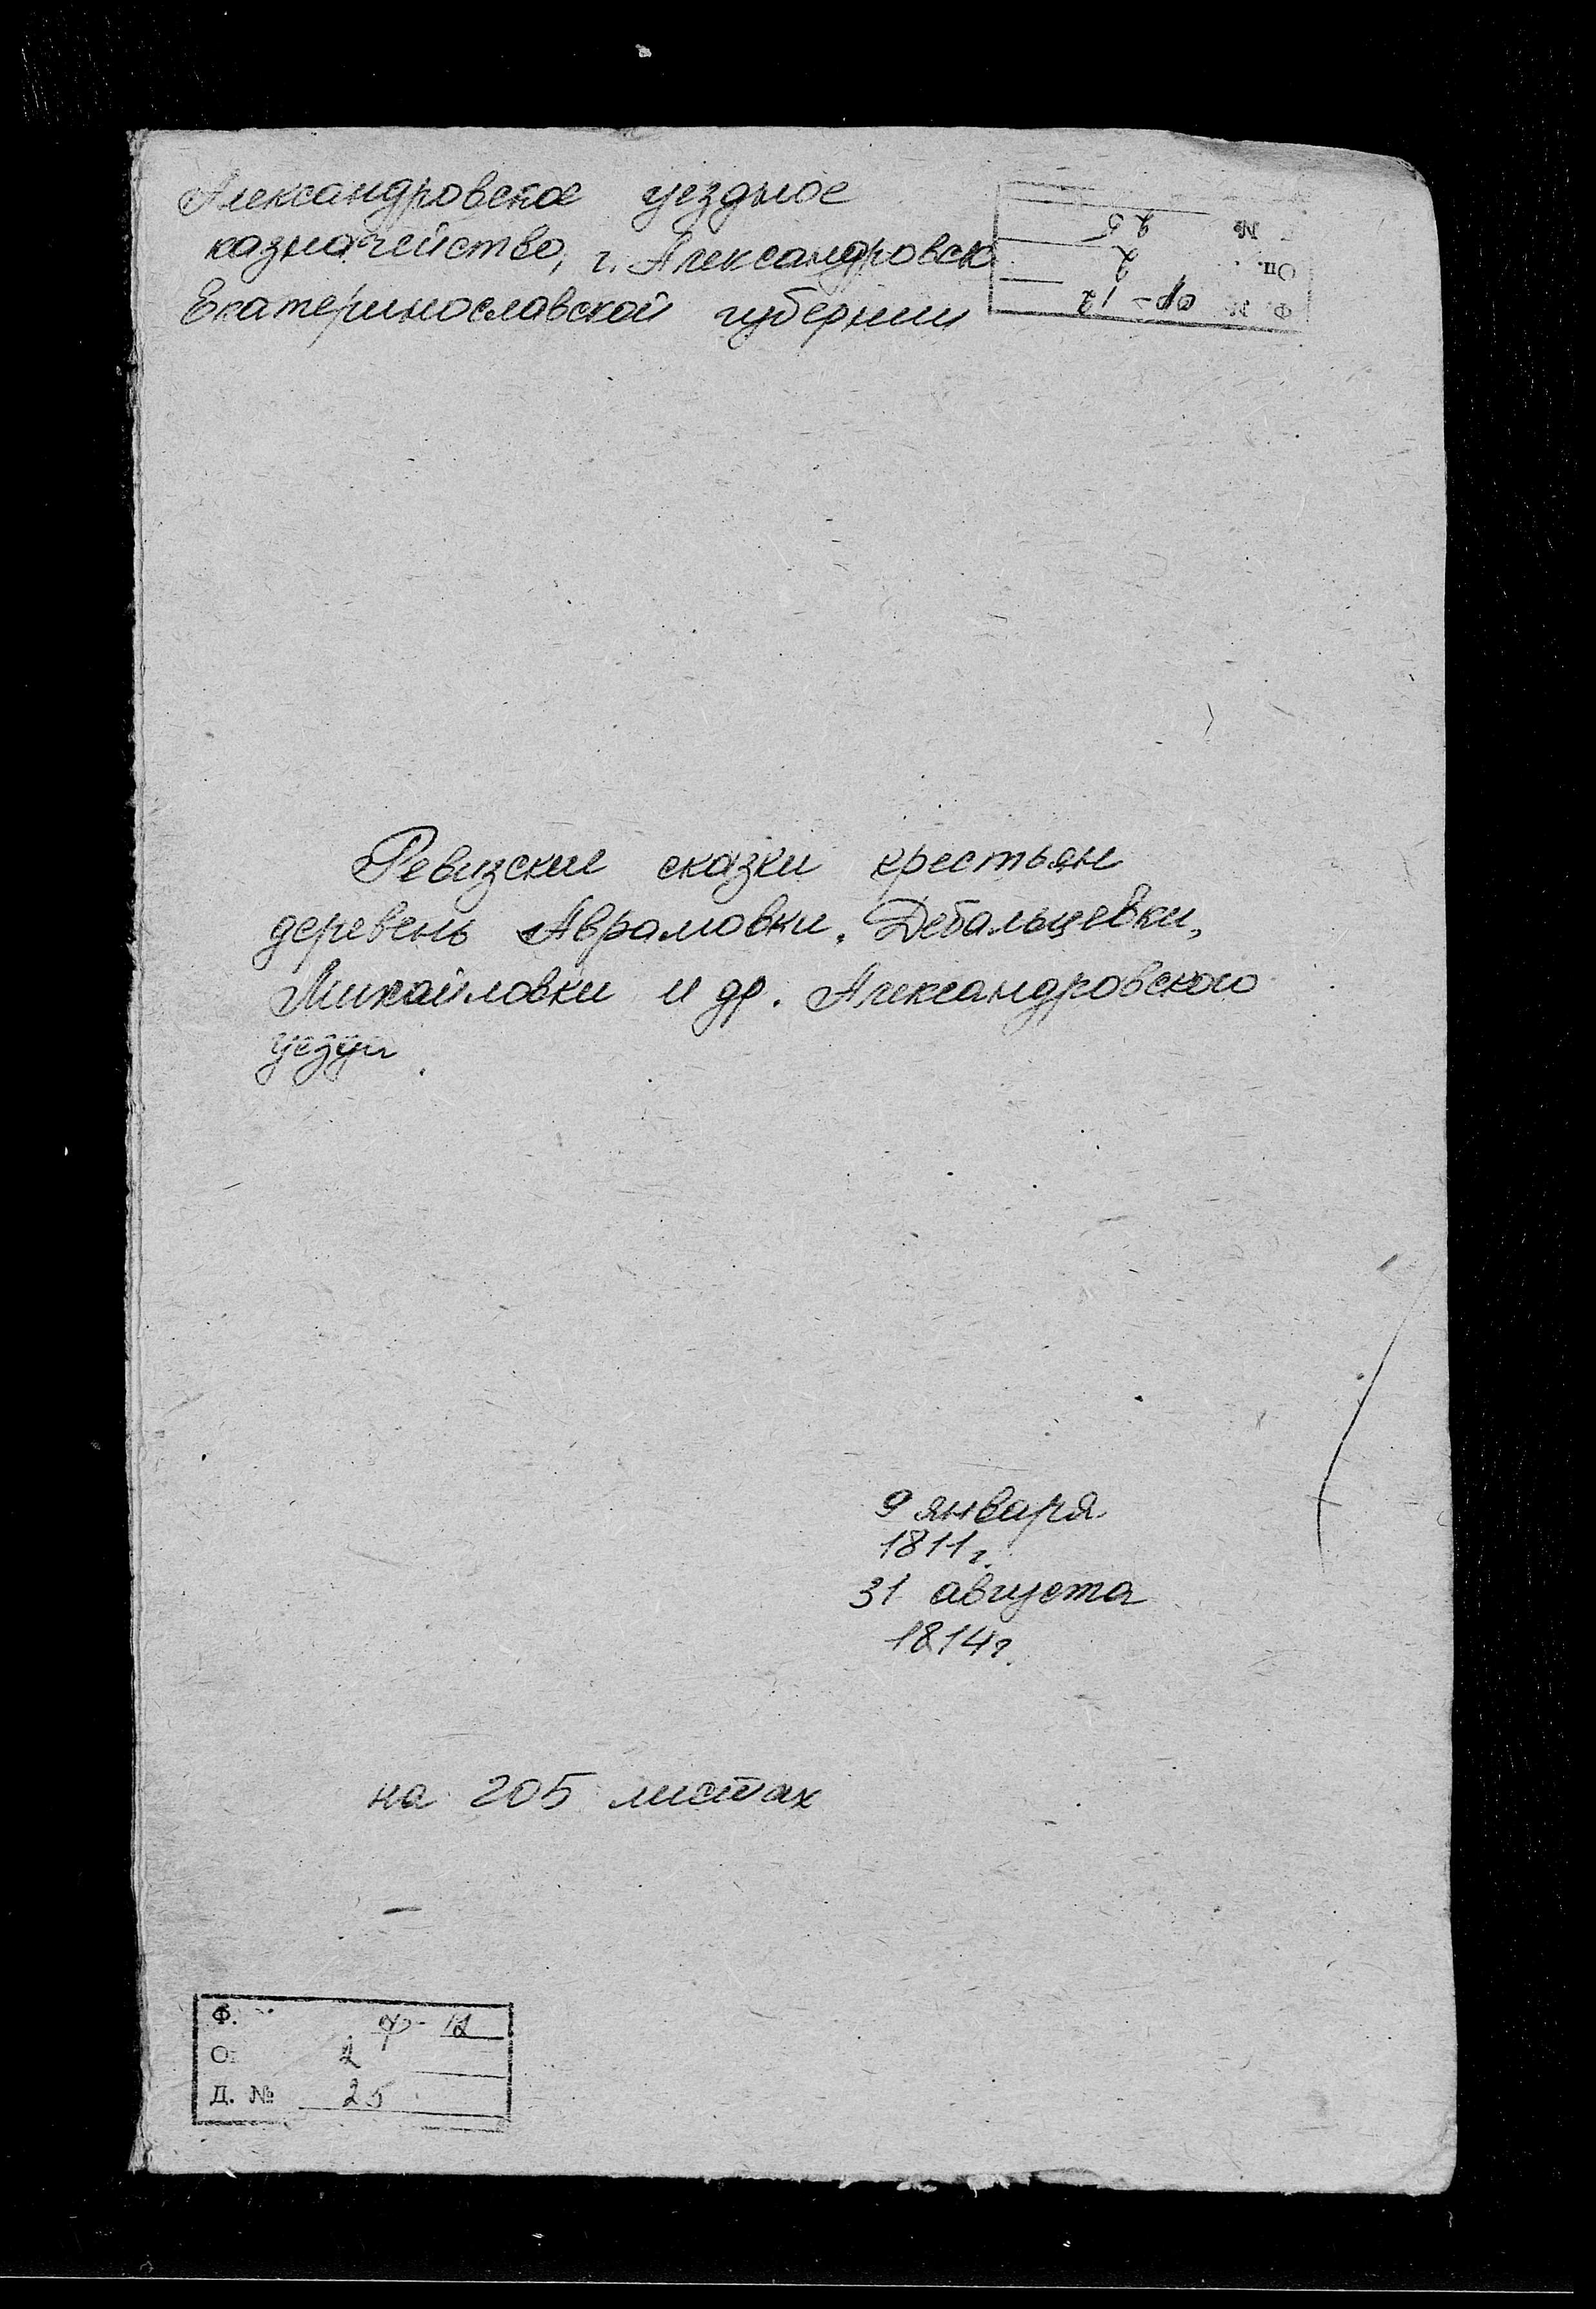 Александровское уездное
казначейство, г. Александровск
Екатеринославской губернии
Ф. № ф-12
Оп. 2
№ 25
Ревизские сказки крестьян
деревень Аврамовки, Дебальцевки,
Михайловки и др. Александровского
уезда.
9 января
1811г.
31 августа
1814г.
на 205 листах
Ф. ф-12
О 2
Д. № 25